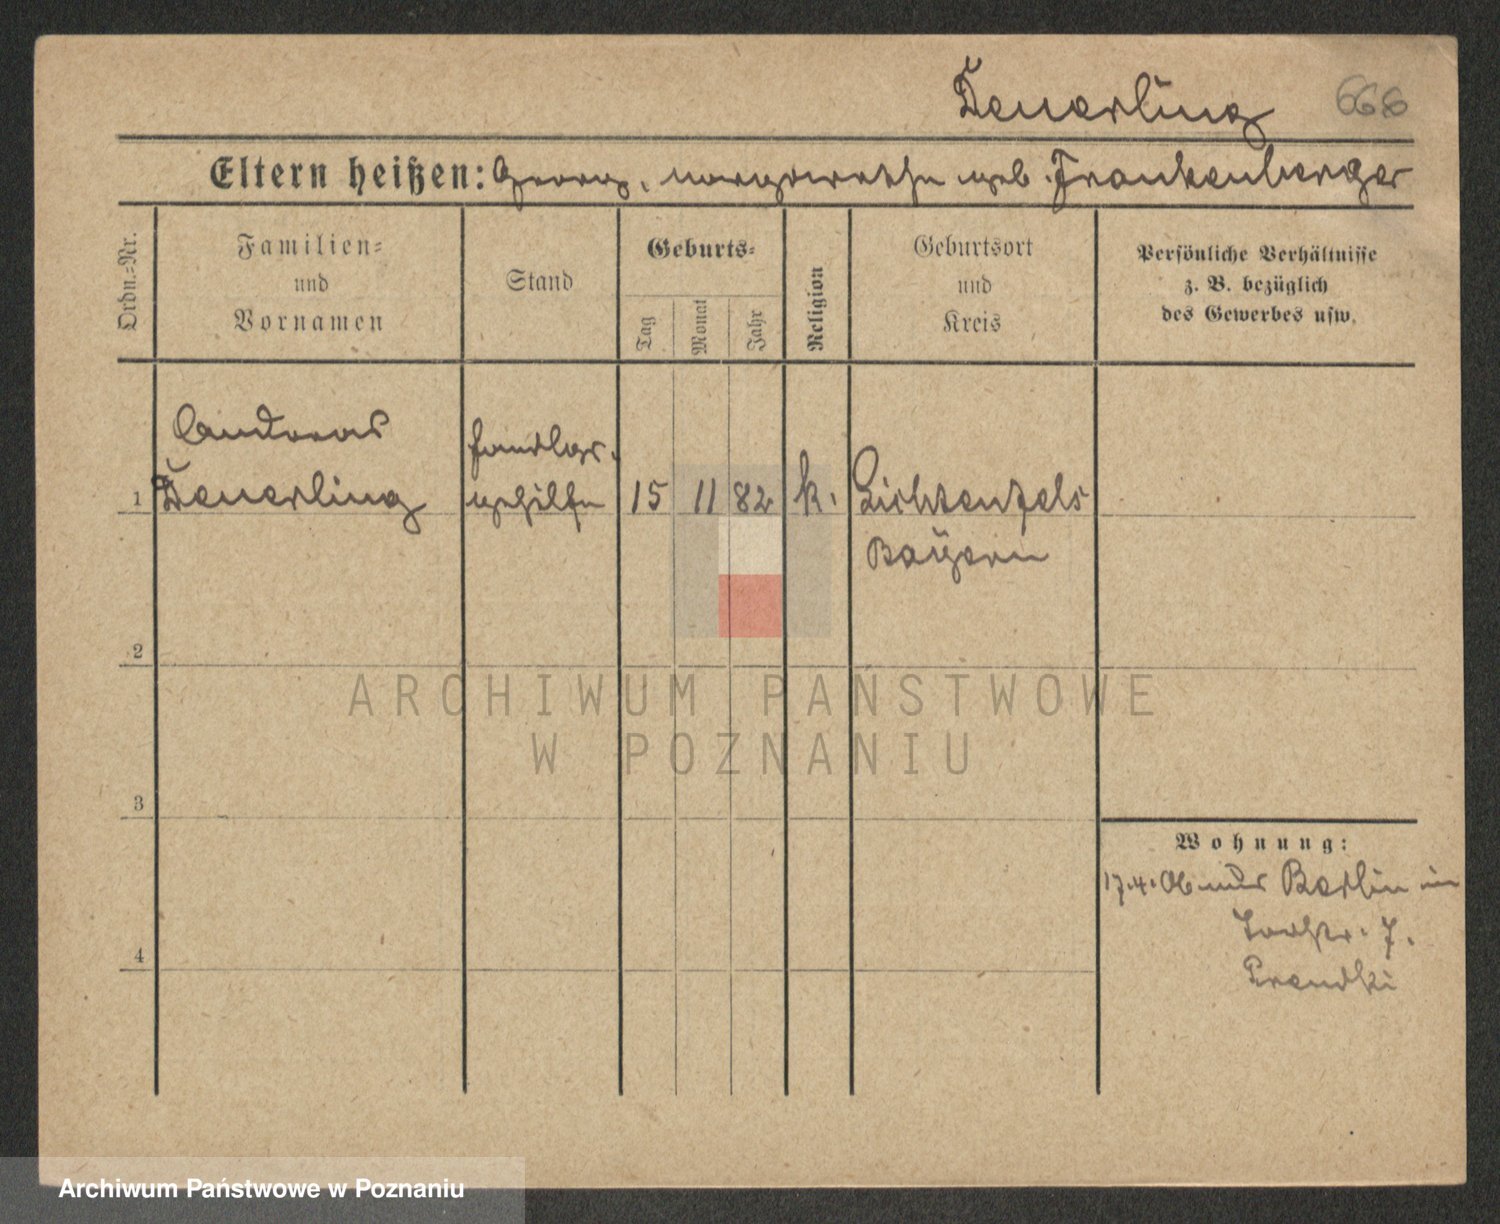 Deuerling 666
Eltern heißen: Georg, Margarethe geb. Frankenberger
Ordn.-Nr.
Familien-
und
Vornamen
Stand
Geburts-
Tag
Monat
Jahr
Religion
Geburtsort
und
Kreis
Persönliche Verhältnisse
z. B. bezüglich
des Gewerbes usw.
Andreas
Deuerling
Handlgs.
gehilfe
1
15 11 82 k. Lichtenfels
Bayern
2
3
4
Wohnung:
17.4.06 aus Berlin in
7.
ARCHIWUM PAŃSTWOWE
W POZNANIU
Archiwum Państwowe w Poznaniu